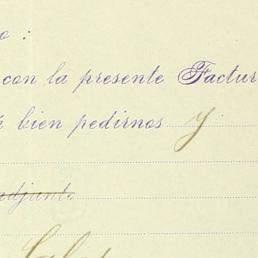 o :
con la presente Factur
bien pedirnos y
adjunt